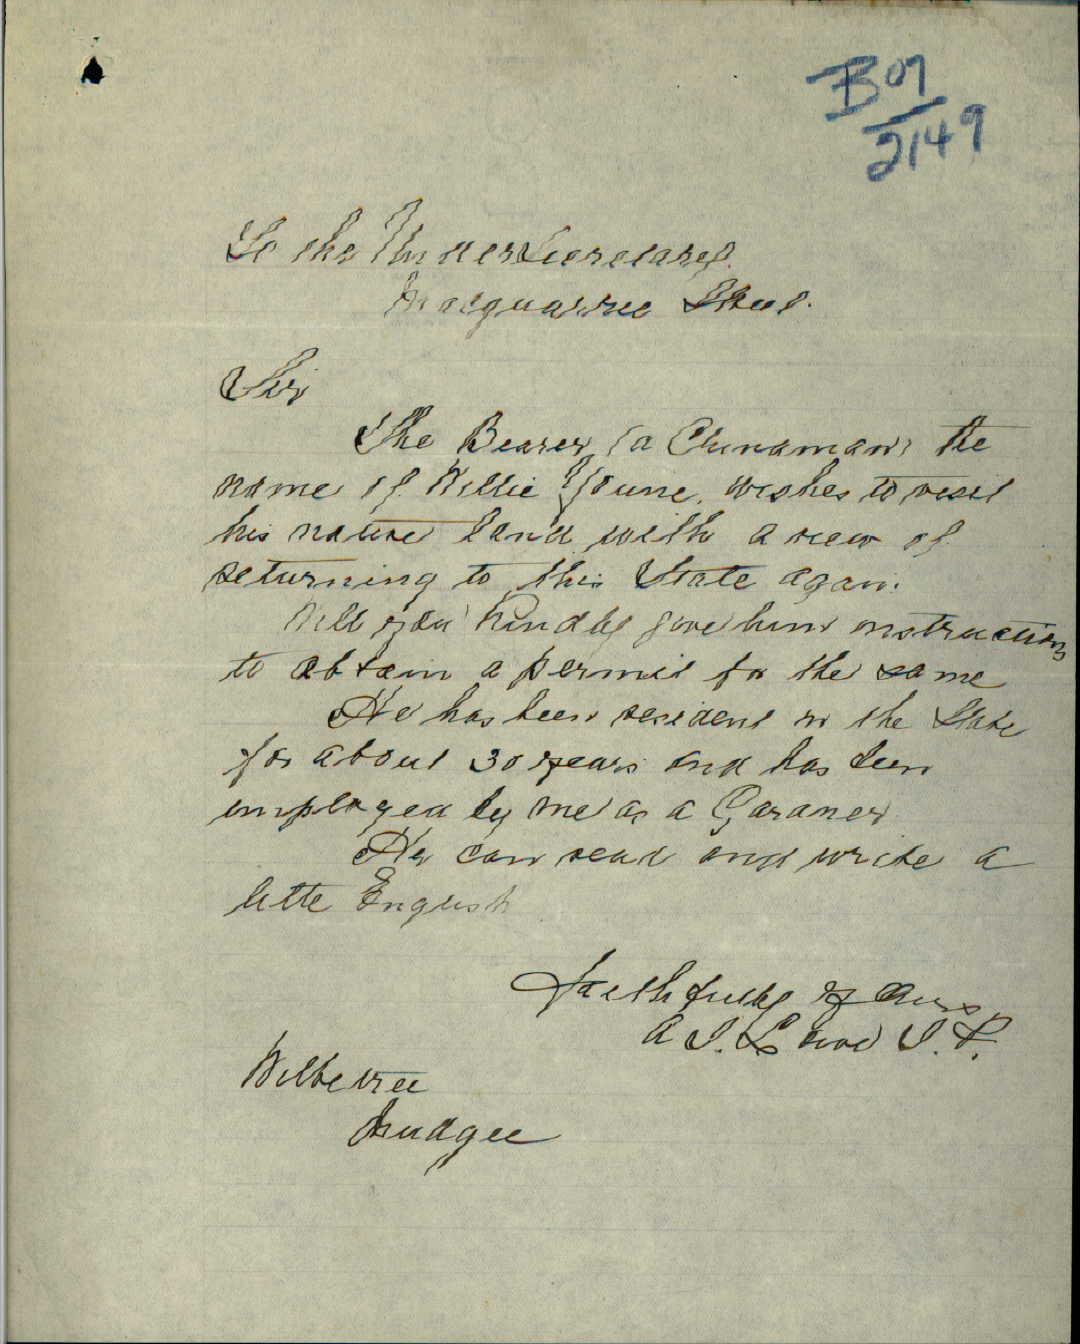 B07
2149
To the Under Secretary.
Macquarrie Street.
Sir
The Bearer (a Chinaman) the
name of Willie Youne, wishes to visit
his native land with a view of
returning to this State again.
Will you kindly give him instructions
to obtain a permit for the same
He has been resident in the State
for about 30 years and has been
employed by me as a Gardner
He can read and write a
little English
Faithfully yours
A J. Lowe J.P.
Wilbetree
Mudgee